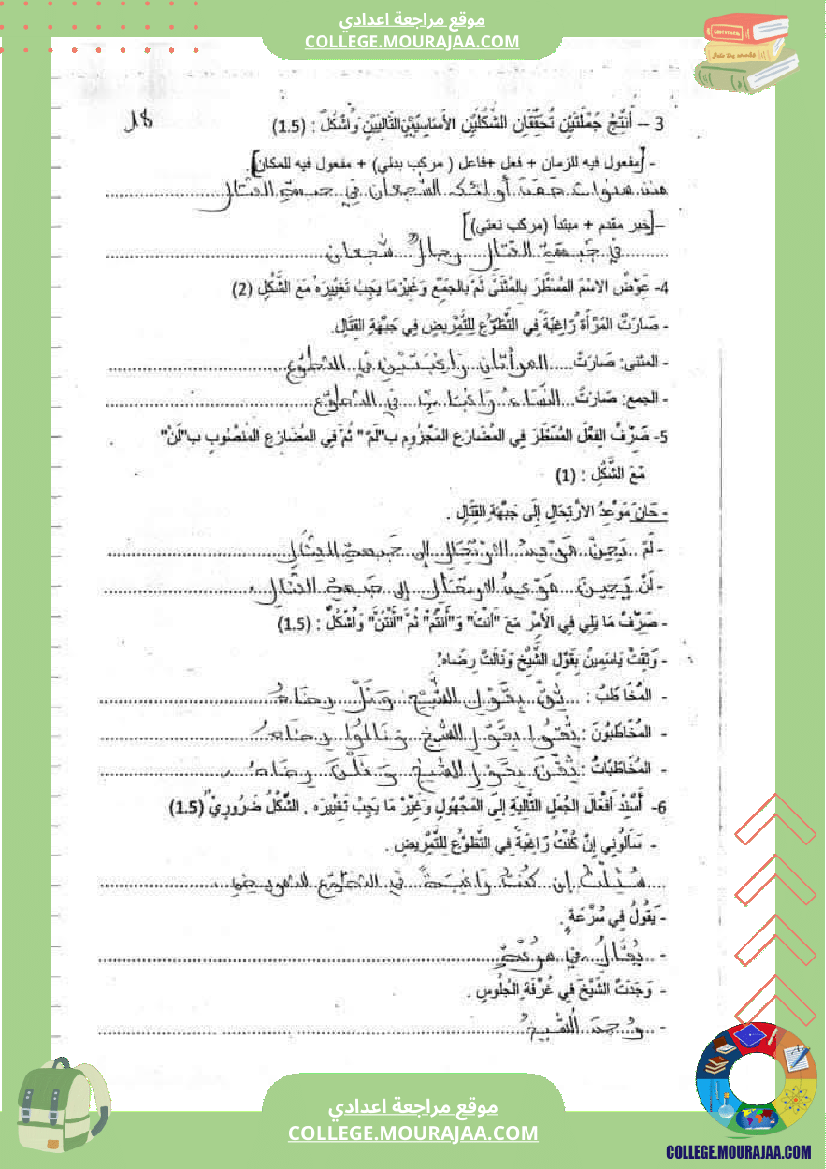 موقع مراجعة اعدادي
COLLEGE.MOURAJAA.COM
3 – أُنْتِجُ جُمْلَتَيْنِ تُحَقِّقَانِ الشَّكْلَيْنِ الأَسَاسِيَّيْنِ التَّالِيَيْنِ وَأَشْكُلُ : (1.5)
- [مفعول فيه للزمان + فعل +فاعل ( مركب بدلي) + مفعول فيه للمكان].
منذ سنوات أولئك الشجعان في جبهة القتال
–[خبر مقدم + مبتدأ (مركب نعتي)]
في جبهة القتال رجالٌ شجعان
4- عَوِّضْ الاسْمَ المُسَطَّرَ بِالمُثَنَّى ثُمَّ بِالجَمْعِ وَغَيِّرْ مَا يَجِبُ تَغْيِيرَهُ مَعَ الشَّكْلِ (2)
- صَارَتْ المَرْأَةُ رَاغِبَةً فِي التَّطَوُّعِ لِلتَّمْرِيضِ فِي جَبْهَةِ القِتَالِ.
- المثنى: صَارَتْ المرأتان راغبتين في التطوّع
- الجمع: صَارَتْ النّساءُ راغبات في التطوّع
5- صَرِّفْ الفِعْلَ المُسَطَّرَ فِي المُضَارِعِ المَجْزُومِ بـ"لَمْ" ثُمَّ فِي المُضَارِعِ المَنْصُوبِ بـ"لَنْ"
مَعَ الشَّكْلِ : (1)
- حَانَ مَوْعِدُ الارْتِحَالِ إِلَى جَبْهَةِ القِتَالِ .
- لَمْ يَحِنْ موعدُ الارتحال إلى جبهة القتال
- لَنْ يَحِينَ موعدُ الارتحال إلى جبهة القتال.
- صَرِّفْ مَا يَلِي فِي الأَمْرِ مَعَ "أَنْتَ" وَ"أَنْتُمْ" ثُمَّ "أَنْتُنَّ" وَأَشْكُلُ : (1.5)
- وَثِقَتْ يَاسَمِينُ بِقَوْلِ الشَّيْخِ وَنَالَتْ رِضَاهُ.
- المُخَاطَبُ : ثِقْ بِقَوْلِ الشَّيْخِ وَنَلْ رِضَاهُ
- المُخَاطَبُونَ : ثِقُوا بِقَوْلِ الشَّيْخِ وَنَالُوا رِضَاهُ
- المُخَاطَبَاتُ : ثِقْنَ بِقَوْلِ الشَّيْخِ وَنَلْنَ رِضَاهُ .
6- أُسْنِدُ أَفْعَالَ الجُمَلِ التَّالِيَةِ إِلَى المَجْهُولِ وَغَيِّرْ مَا يَجِبُ تَغْيِيرَه . الشَّكْلُ ضَرُورِيٌّ (1.5)
- سَأَلُونِي إِنْ كُنْتُ رَاغِبَةً فِي التَّطَوُّعِ لِلتَّمْرِيضِ .
سُئلتُ إن كنتُ راغبةً في التطوّع للتمريض.
- يَقُولُ فِي سُرْعَةٍ .
- يُقَالُ في سرعةٍ
- وَجَدَتْ الشَّيْخَ فِي غُرْفَةِ الجُلُوسِ .
- وُجِدَ الشَّيخُ
موقع مراجعة اعدادي
COLLEGE.MOURAJAA.COM
COLLEGE.MOURAJAA.COM